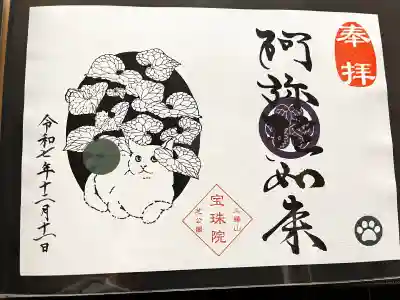 奉拝
阿弥陀如来
三縁山
宝珠院
芝公園
令和七年十二月十二日